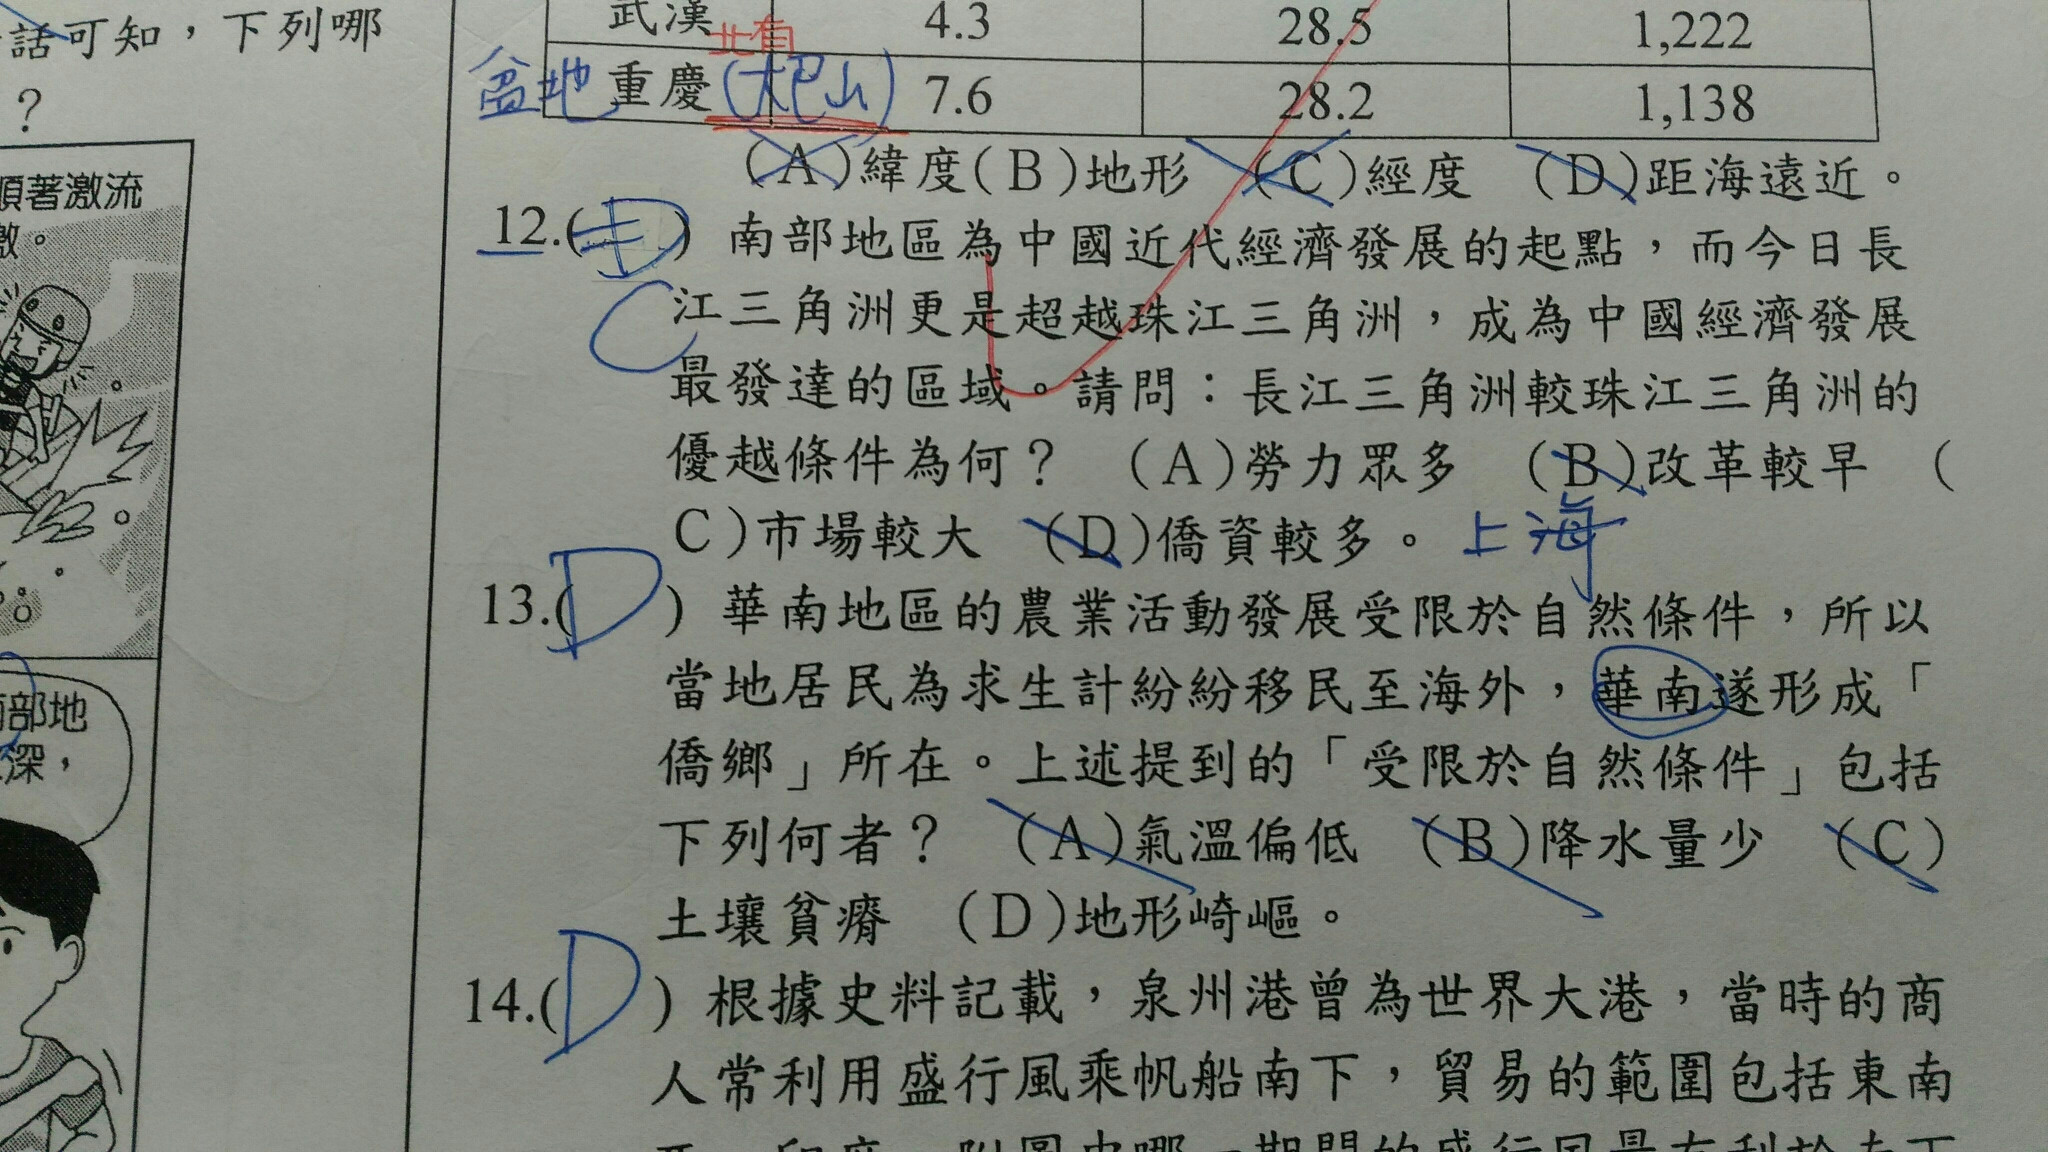 話可知，下列哪
？
順著激流
激。
部地
深，
武漢 4.3 28.5 1,222
北有
盆地 重慶(大巴山) 7.6 28.2 1,138
(A)緯度(B)地形 (C)經度 (D)距海遠近。
12.(D) 南部地區為中國近代經濟發展的起點，而今日長
C 江三角洲更是超越珠江三角洲，成為中國經濟發展
最發達的區域。請問：長江三角洲較珠江三角洲的
優越條件為何？ (A)勞力眾多 (B)改革較早 (
C)市場較大 (D)僑資較多。 上海
13.(D) 華南地區的農業活動發展受限於自然條件，所以
當地居民為求生計紛紛移民至海外，華南遂形成「
僑鄉」所在。上述提到的「受限於自然條件」包括
下列何者？ (A)氣溫偏低 (B)降水量少 (C)
土壤貧瘠 (D)地形崎嶇。
14.(D) 根據史料記載，泉州港曾為世界大港，當時的商
人常利用盛行風乘帆船南下，貿易的範圍包括東南